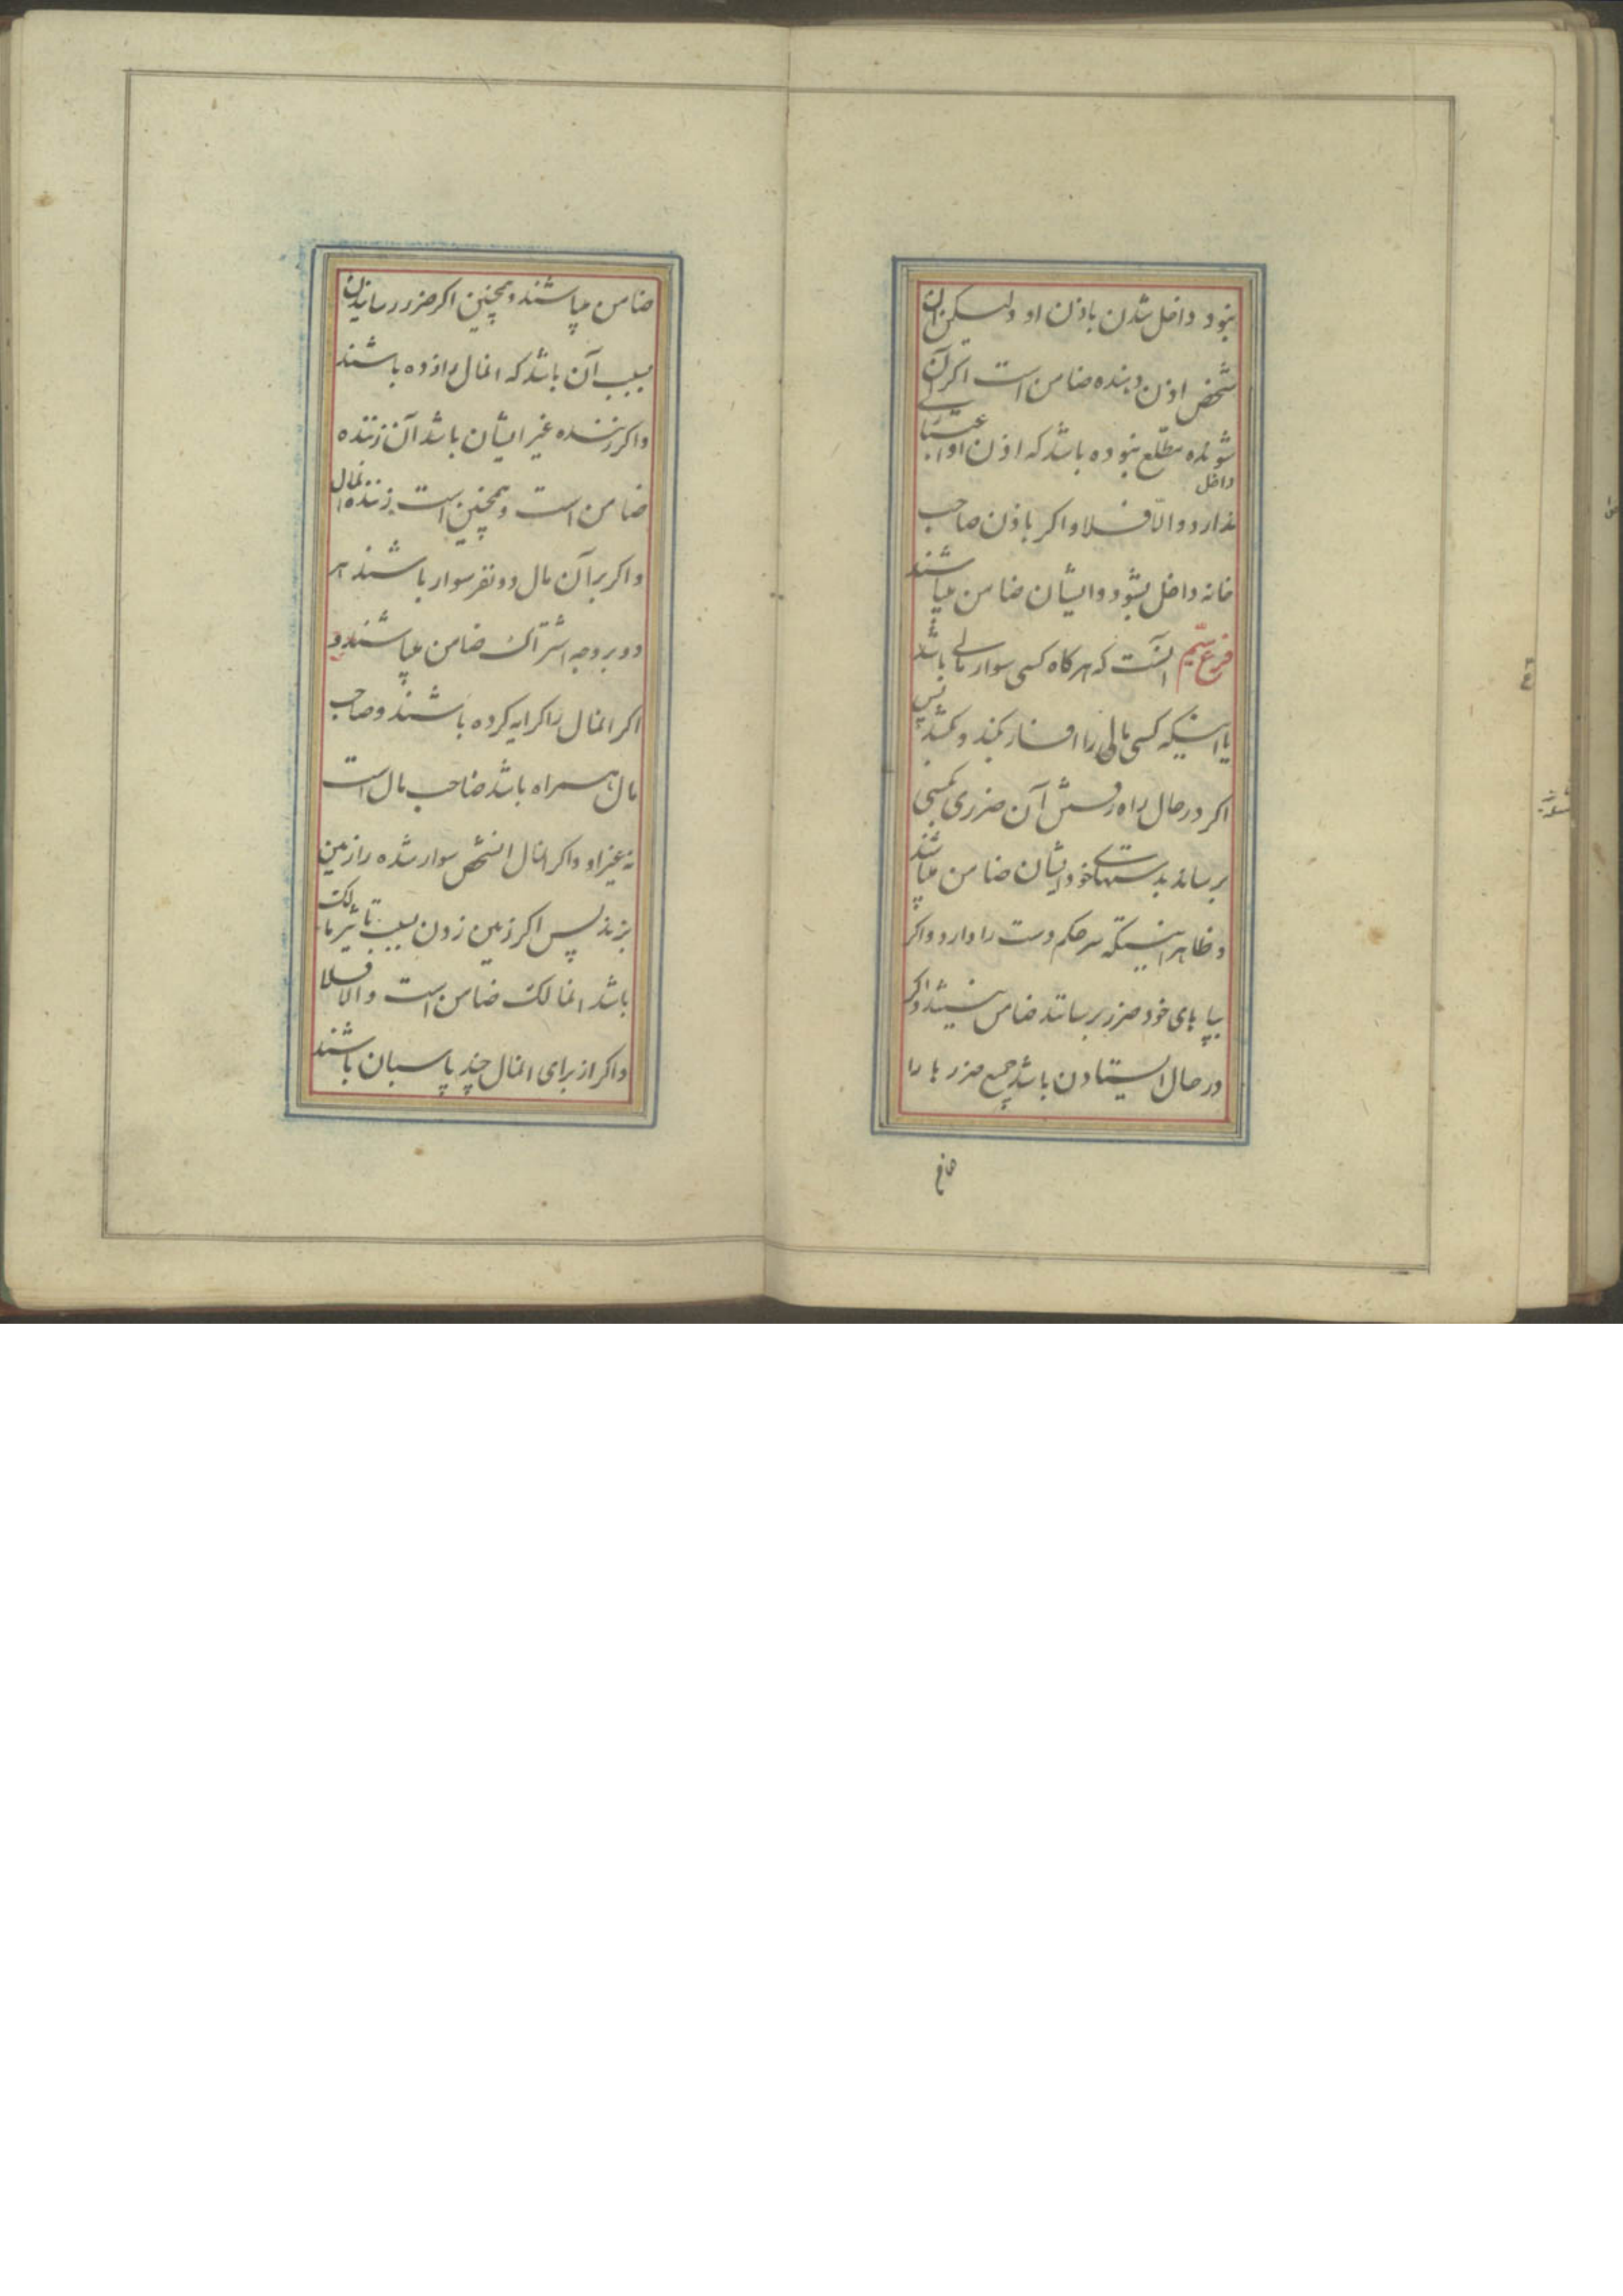 نبود داخل شدن باذن او ولیکن آن
شخص اذن دهنده ضامن است اکر آن
شونده مطلع نبوده باشد که اذن او اعتباری
داخل
ندارد و الّا فلا و اکر باذن صاحب
خانه داخل بشود و ایشان ضامن میباشند
فرع سیّم آنست که هرکاه کسی سوار مالی باشد
یا اینکه کسی مالی را افسار بکند و بکشد پس
اکر در حال راه رفتنش آن ضرری بکسی
برساند بدستهای خود ایشان ضامن میباشند
و ظاهر اینستکه سر حکم دست را دارد و اکر
بپاهای خود ضرر برساند ضامن نیستند و اکر
در حال ایستادن باشد جمیع ضررها را
ضامن میباشند و همچنین اکر ضرر رسانیدن
بسبب آن باشد که انمال را زده باشند
و اکر زننده غیر ایشان باشد آن زننده
ضامن است و همچنین است زننده انمال
و اکر بر آن مال دو نفر سوار باشند هر
دو بر وجه اشتراک ضامن میباشند و
اکر انمال را کرایه کرده باشند و صاحب
مال همراه باشد ضاحب مال است
نه غیر او و اکر انمال انشخص سوار شده را زمین
بزند پس اکر زمین زدن بسبب تاثیر مالک
باشد انمالک ضامن است و الا فلا
و اکر از برای انمال چند پاسبان باشند